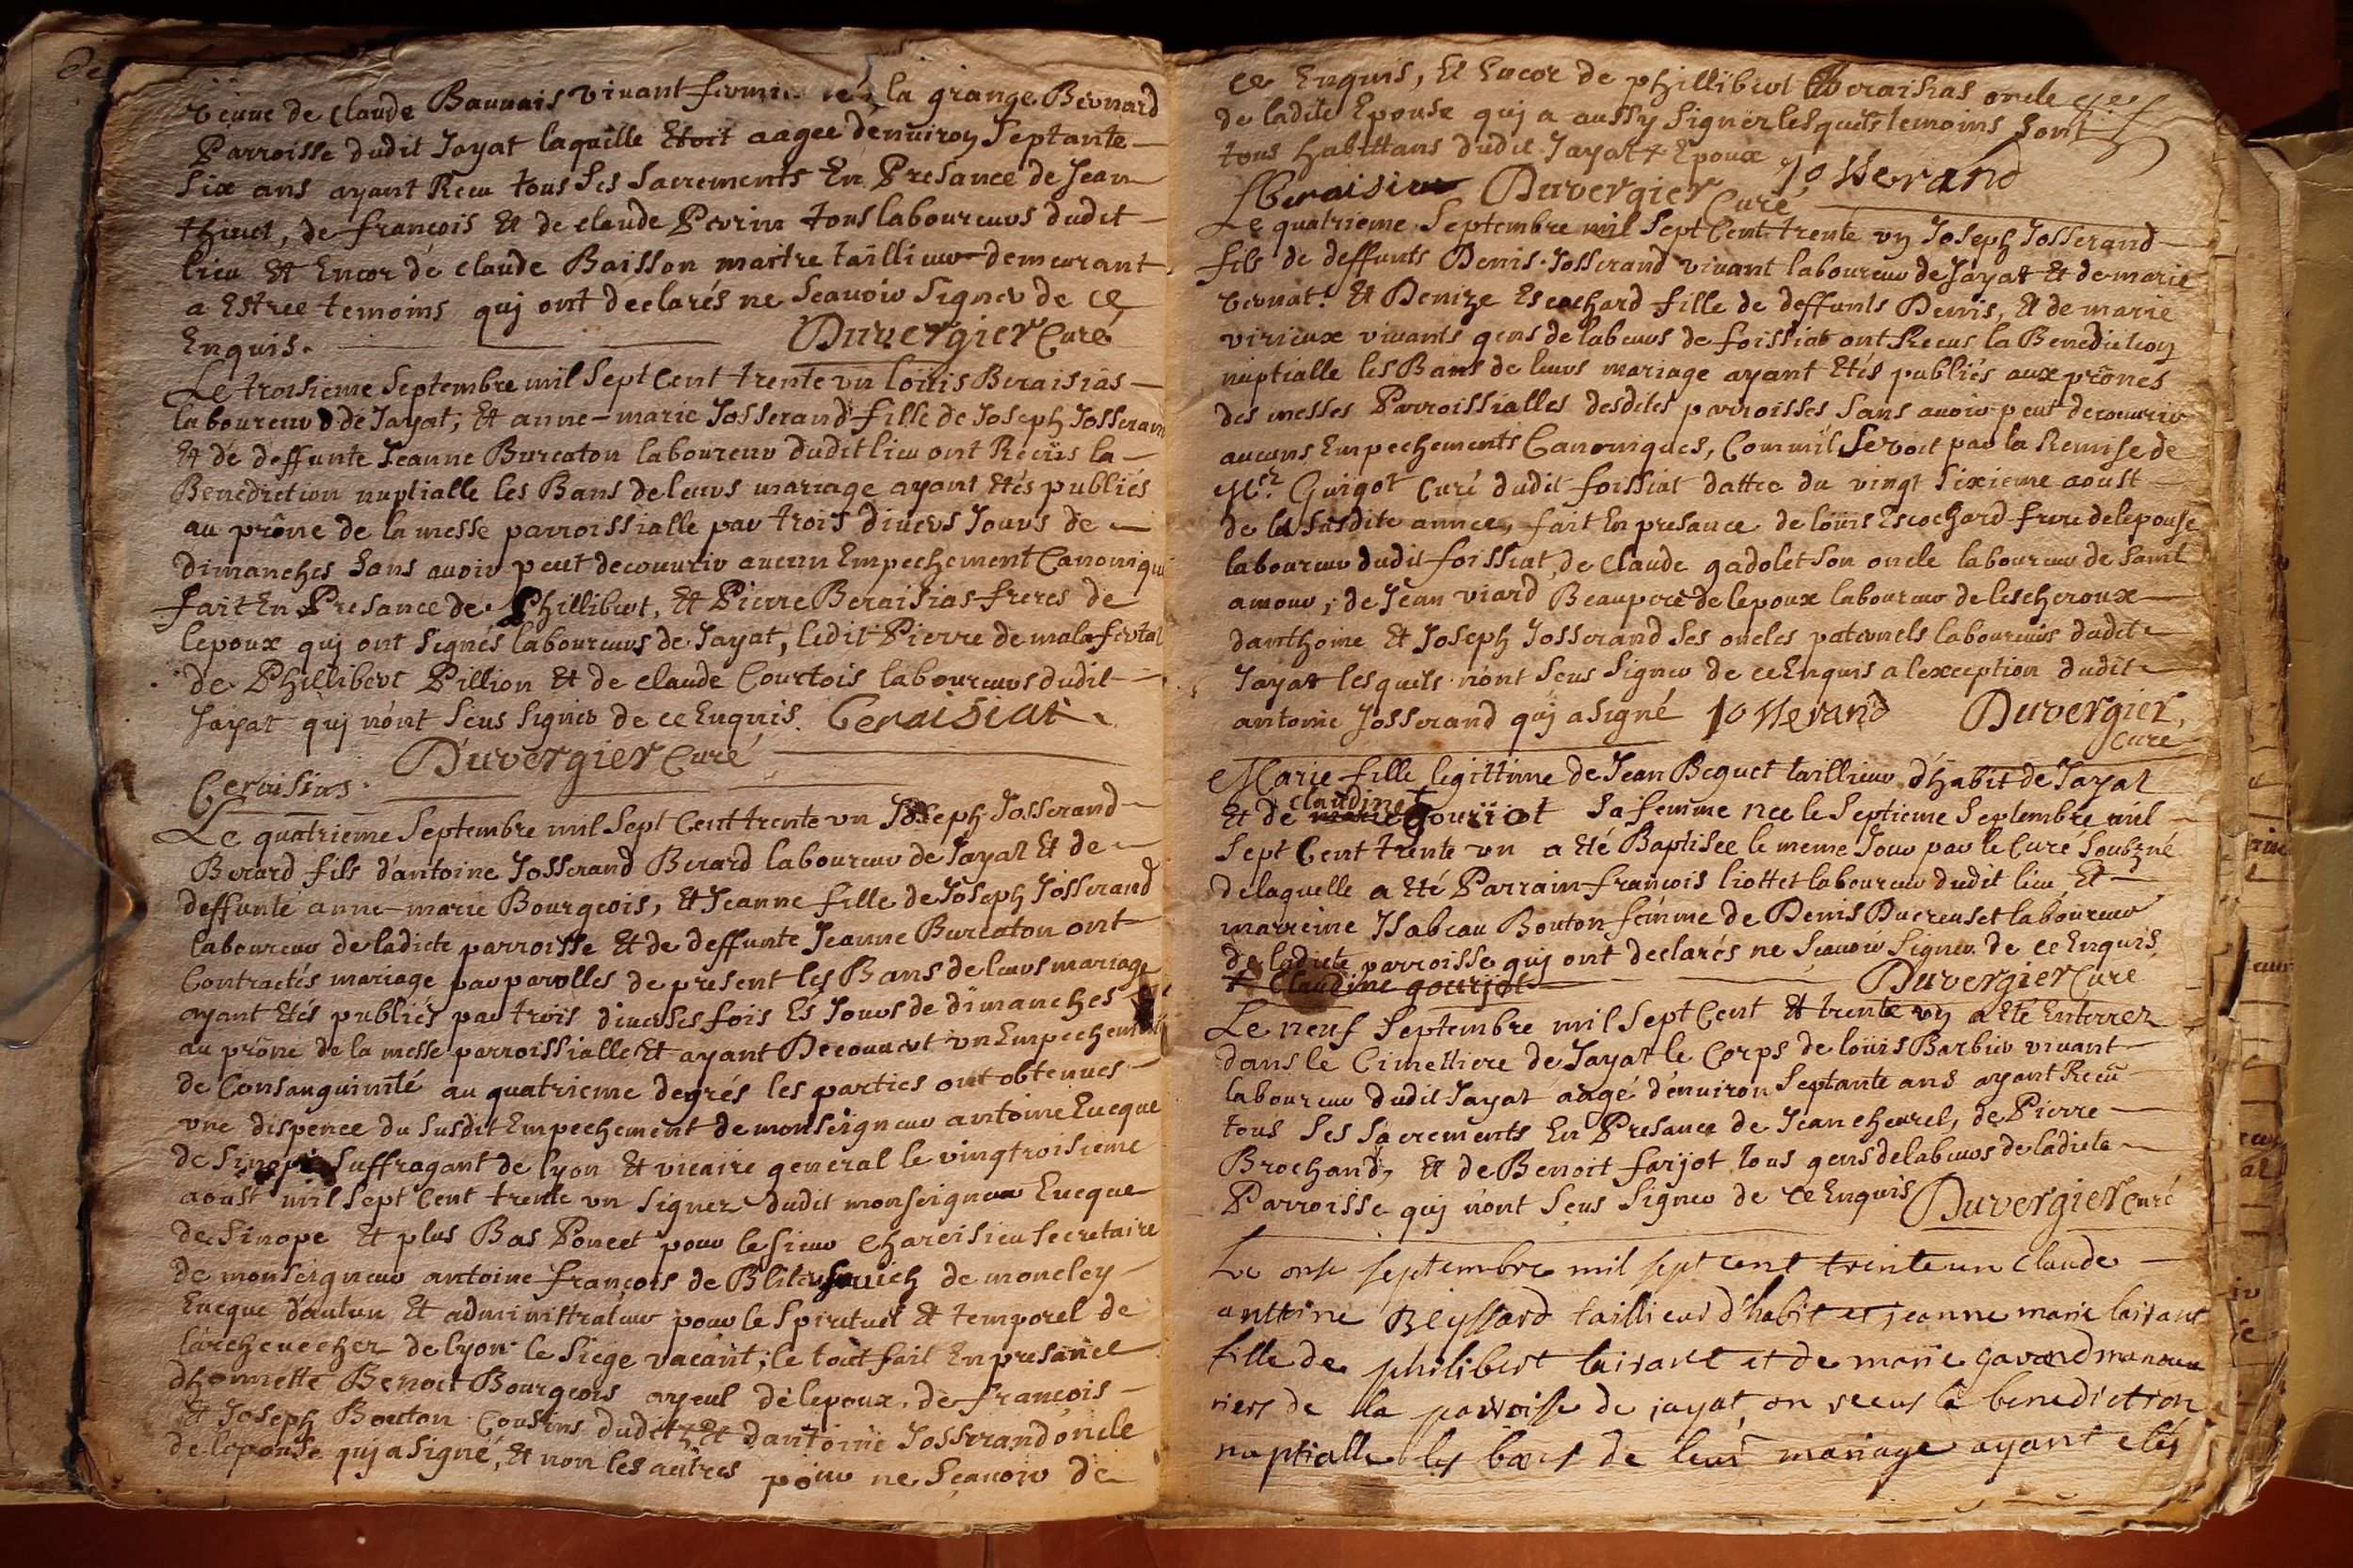 de
veuue de Claude Bauuais viuant fermie la grange Bernard
Parroisse dudit Jayat laquelle Etoit aagee denuiron Septante
Six ans ayant Recu tous Ses Sacrements En Presance de Jean
de francois Et de claude Perrin tous laboureurs dudit
lieu Et Encor de claude Baisson maitre taillieur demeurant
a Estree temoins quj ont declarés ne Scauoir Signer de ce
Enquis. Duvergier Curé
Le troisieme Septembre mil Sept Cent trente vn loüis Beraisias
laboureur de Jayat; Et anne-marie Josserand fille de Joseph Josseran
Et de deffunte Jeanne Burcaton laboureur dudit lieu ont Recüs la
Benediction nuptialle les Bans de leurs mariage ayant Etés publiés
au prône de la messe parroissialle par trois diuers Jours de
dimanches Sans auoir peut decouurir aucun Empechement Canoniqu
fait En Presance de Phillibert, Et Pierre Beraisias freres de
lepoux quj ont Signés laboureurs de Jayat, ledit Pierre de malafertal
de Phillibert Pillion Et de claude Courtois laboureurs dudit
Jayat quj n'ont Seus Signer de ce Enquis. Beraisias
Duvergier Curé
Beraisias
Le quatrieme Septembre mil Sept Cent trente vn Joseph Josserand
Berard fils d'antoine Josserand Berard laboureur de Jayat Et de
deffunte anne-marie Bourgeois, Et Jeanne fille de Joseph Josserand
laboureur de ladicte parroisse Et de deffunte Jeanne Burcaton ont
Contractés mariage par parolles de present les Bans de leurs mariage
ayant Etés publiés par trois diuerses fois Es Jours de dimanches
au prône de la messe parroissialle Et ayant Decouuert vn Empechement
de Consanguinité au quatrieme degrés les parties ont obtenues
vne dispence du susdit Empechement de monseigneur antoine Eueque
de Sinope Suffragant de lyon Et vicaire general le vingtroisieme
aoust mil Sept Cent trente vn Signez dudit monseigneur Eueque
de Sinope Et plus Bas Poncet pour le Sieur Secretaire
de monseigneur antoine françois de de moncley
Eueque d'autun Et administrateur pour le Spirituel Et temporel de
larcheuecher de lyon le Siege vacant; le tout fait En presance
dhonnette Benoit Bourgeois ayeul de lepoux, de françois
Et Joseph Bouton Cousins dudit, Et dantoine Josserand oncle
de lepouse quj a Signé, Et non les autres pour ne Scauoir de
ce Enquis, Et Encor de phillibert Beraisias oncle
de ladite Epouse quj a aussy Signer lesquels temoins Sont
tous habittans dudit Jayat + Epoux Josserand
Beraisias Duvergier Curé
Le quatrieme Septembre mil Sept Cent trente vn Joseph Josserand
fils de deffunts Denis Josserand viuant laboureur de Jayat Et de marie
Et Denize Escochard fille de deffunts Denis, Et de marie
virieux viuants gens de labeurs de foissiat ont Recus la Benediction
nuptialle les Bans de leurs mariage ayant Etés publiés aux prônes
des messes Parroissialles desdites parroisses Sans auoir peut decouurir
aucuns Empechements Canoniques, Comm'il Se voit par la Remise de
Mre Guigot Curé dudit foissiat dattee du vingt Sixieme aoust
de la susdite annee, fait En presance de loüis Escochard frere de lepouse
laboureur dudit foissiat, de Claude gadolet Son oncle laboureur de Saint
amour, de Jean viard Beaupere de lepoux laboureur de lescheroux
danthoine Et Joseph Josserand Ses oncles paternels laboureurs dudit
Jayat lesquels n'ont Seus Signer de ce Enquis a lexception dudit
antoine Josserand quj a Signé Josserand Duvergier
Curé
Marie fille legittime de Jean Beguet taillieur d'habit de Jayat
Et de claudine gouriot Sa femme nee le Septieme Septembre mil
Sept Cent trente vn a Eté Baptisee le meme Jour par le Curé Soubzné
delaquelle a Eté Parrain francois liottet laboureur dudit lieu Et
marreine Jsabeau Bouton femme de Denis Ducreuset laboureur
de ladicte parroisse quj ont declarés ne Scauoir Signer de ce Enquis
+ Claudine gourjot Duvergier Curé
Le neuf Septembre mil Sept Cent Et trente vn a Eté Enterrez
dans le Cimettiere de Jayat le Corps de loüis Barbier viuant
laboureur dudit Jayat aagé d'enuiron Septante ans ayant Recu
tous Ses Sacrements En Presance de Jean cheurel, de Pierre
Brochand, Et de Benoit farjot tous gens de labeurs de ladicte
Parroisse quj n'ont Seus Signer de ce Enquis Duvergier Curé
Le onse septembre mil sept cent trente un Claude
anttoine Beyssard taillieur d'habit et jeanne marie laisant
fille de philibert laisant et de marie gavand manouv
riers de la parroisse de jayat on recus la benediction
nuptialle les bans de leur mariage ayant etés